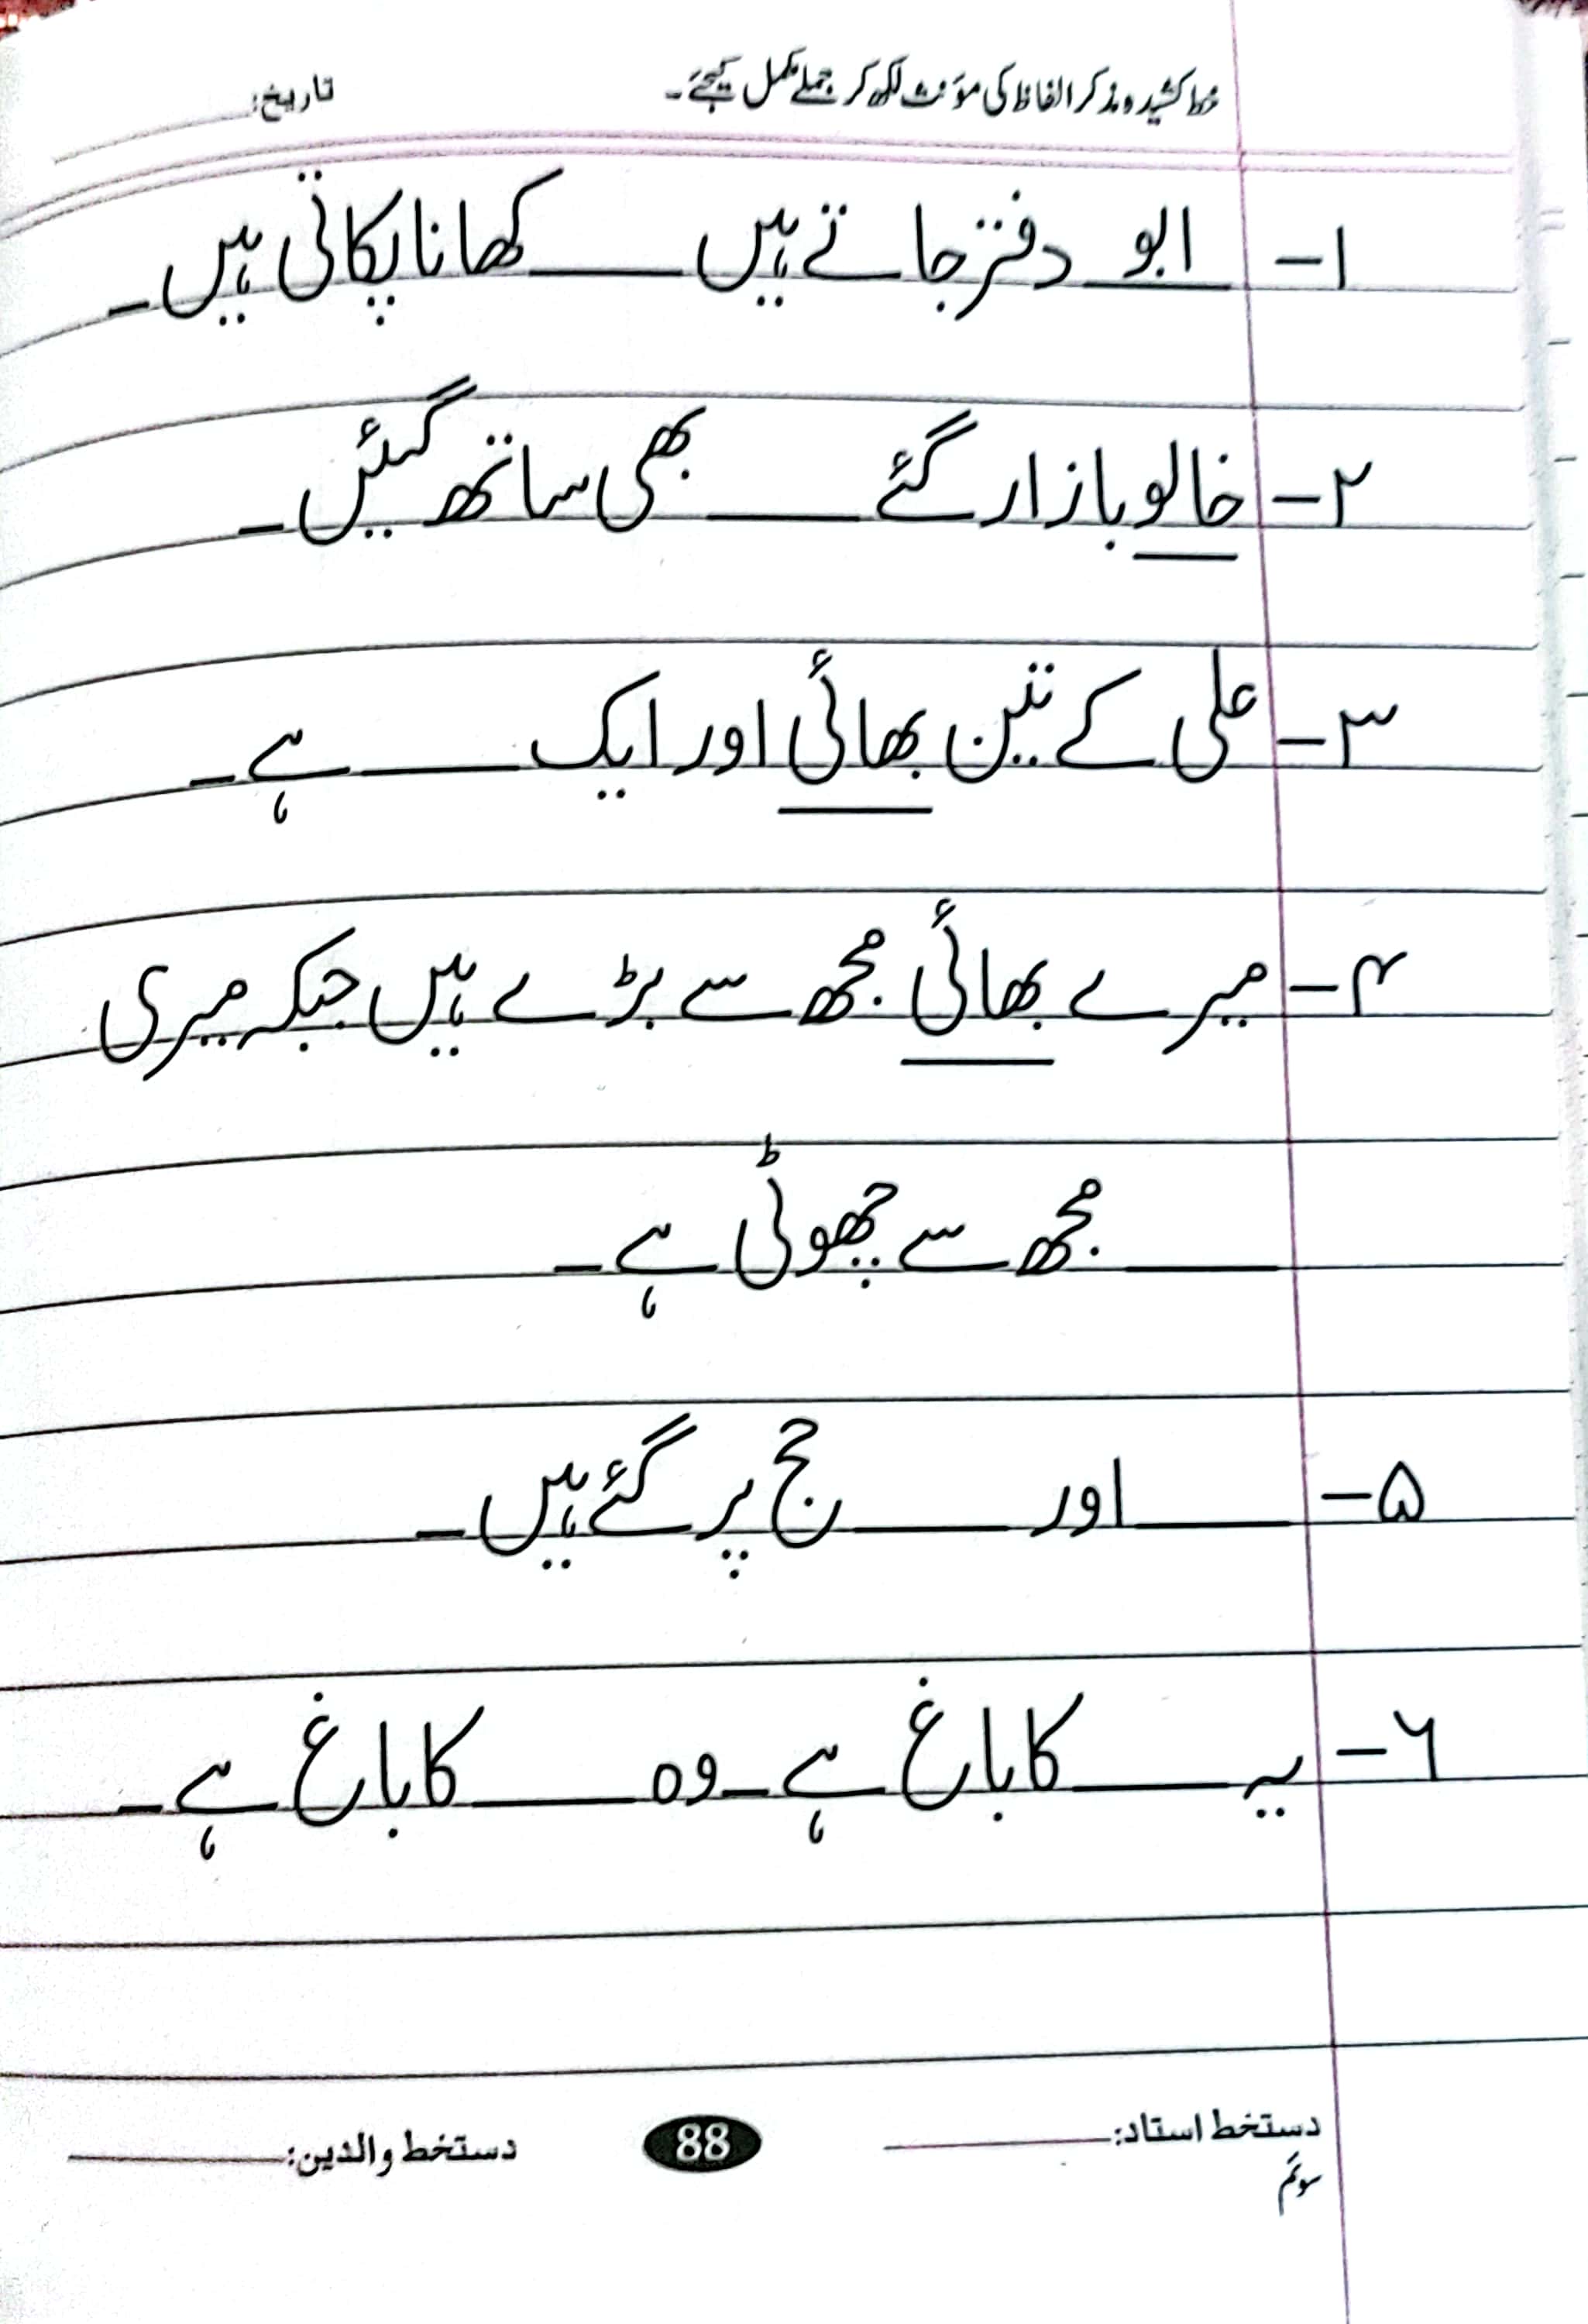 خط کشیدہ مذکر الفاظ کی مؤنث لکھ کر جملے مکمل کیجئے۔ تاریخ:
۱- ابو دفتر جاتے ہیں ____ کھانا پکاتی ہیں۔
۲- خالو بازار گئے ____ بھی ساتھ گئیں۔
۳- علی کے تین بھائی اور ایک ____ ہے۔
۴- میرے بھائی مجھ سے بڑے ہیں جبکہ میری
____ مجھ سے چھوٹی ہے۔
۵- ____ اور ____ حج پر گئے ہیں۔
۶- یہ ____ کا باغ ہے۔ وہ ____ کا باغ ہے۔
دستخط استاد: ____ 88 دستخط والدین: ____
سوئم